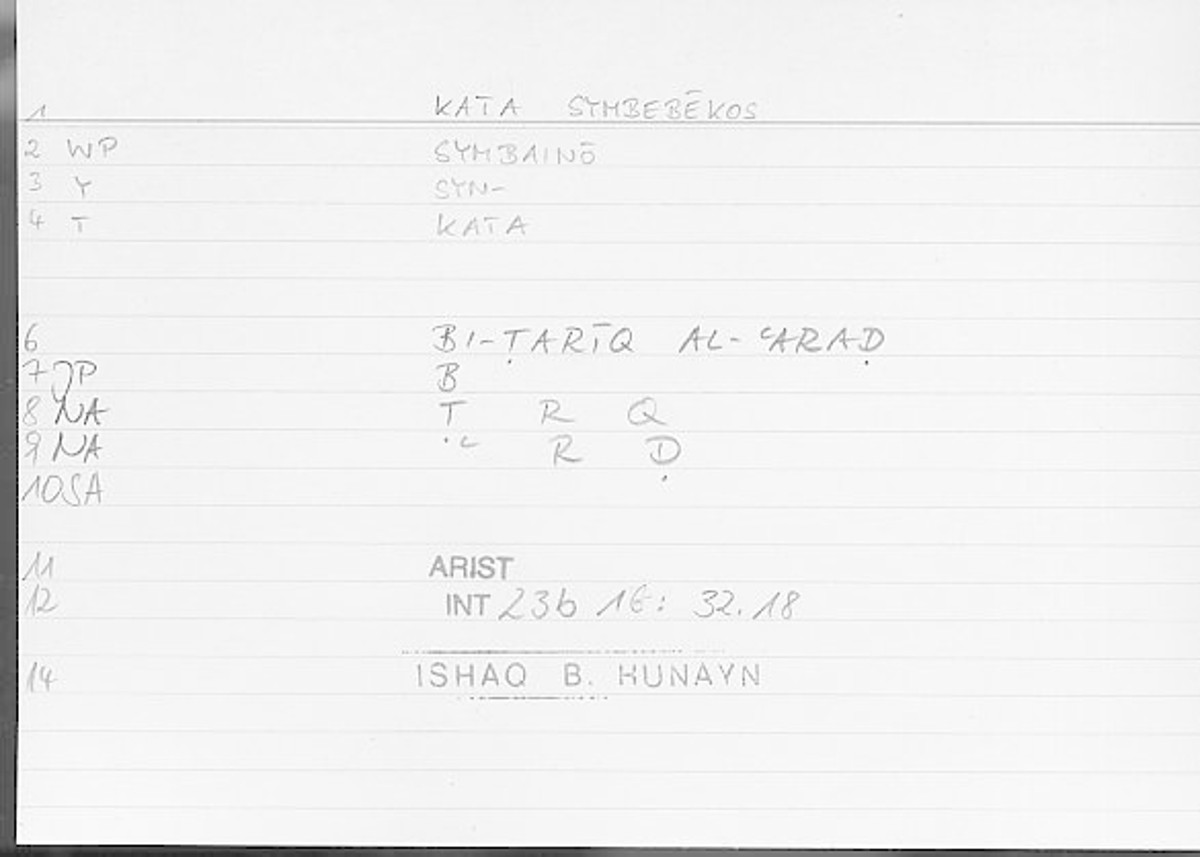 1 KATA SYMBEBĒKOS
2 WP SYMBAINŌ
3 Y SYN-
4 T KATA
6 BI-ṬARĪQ AL-ʿARAḌ
7 JP B
8 NA T R Q
9 NA ʿ R Ḍ
10 SA
11 ARIST
12 INT 23b 16: 32.18
14 ISHAQ B. HUNAYN